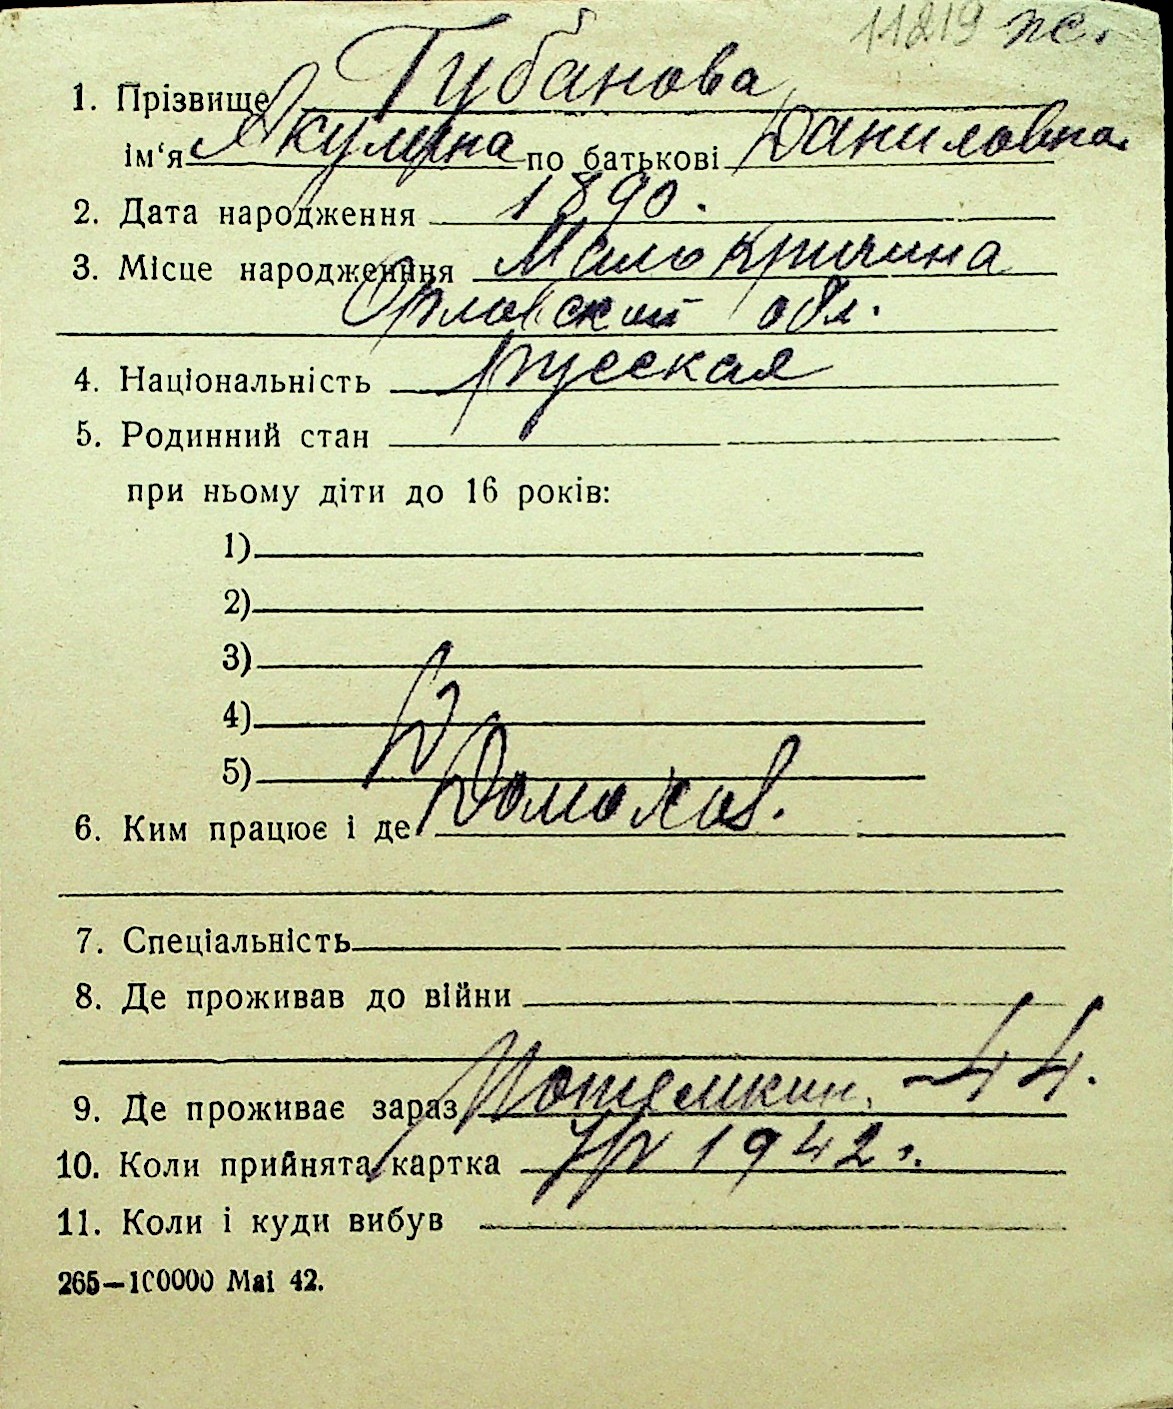 11219 ж.
1. Прізвище Губанова
ім‘я Якулина по батькові Даниловна
2. Дата народження 1890.
3. Місце народженння Мало Кричина
Орловской обл.
4. Національність русская
5. Родинний стан
при ньому діти до 16 років:
1)
2)
3)
4)
5)
6. Ким працює і де Домохоз.
7. Спеціальність
8. Де проживав до війни
9. Де проживає зараз Потемкин. - 44.
10. Коли прийнята картка 1942 г.
11. Коли і куди вибув
265—100000 Mai 42.